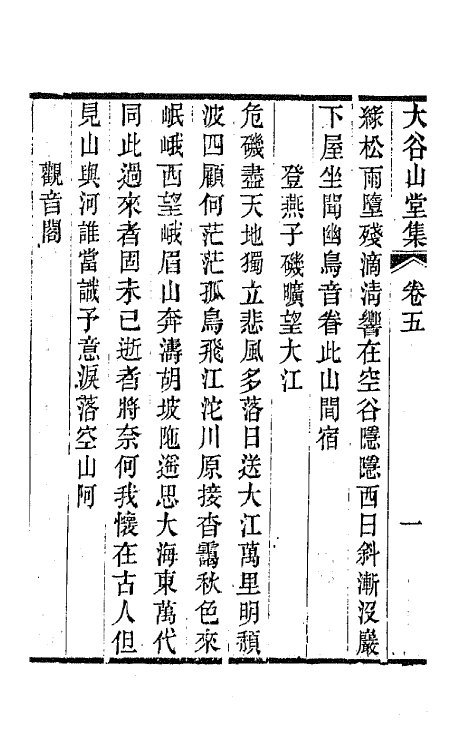 大谷山堂集 卷五 一
綠松雨墮殘滴淸響在空谷隱隱西日斜漸沒巖
下屋坐聞幽鳥音眷此山間宿
登燕子磯曠望大江
危磯盡天地獨立悲風多落日送大江萬里明頹
波四顧何茫茫孤鳥飛江沱川原接杳靄秋色來
岷峨西望峨眉山奔濤胡坡陁遥思大海東萬代
同此過來者固未已逝者將奈何我懷在古人但
見山與河誰當識予意淚落空山阿
觀音閣